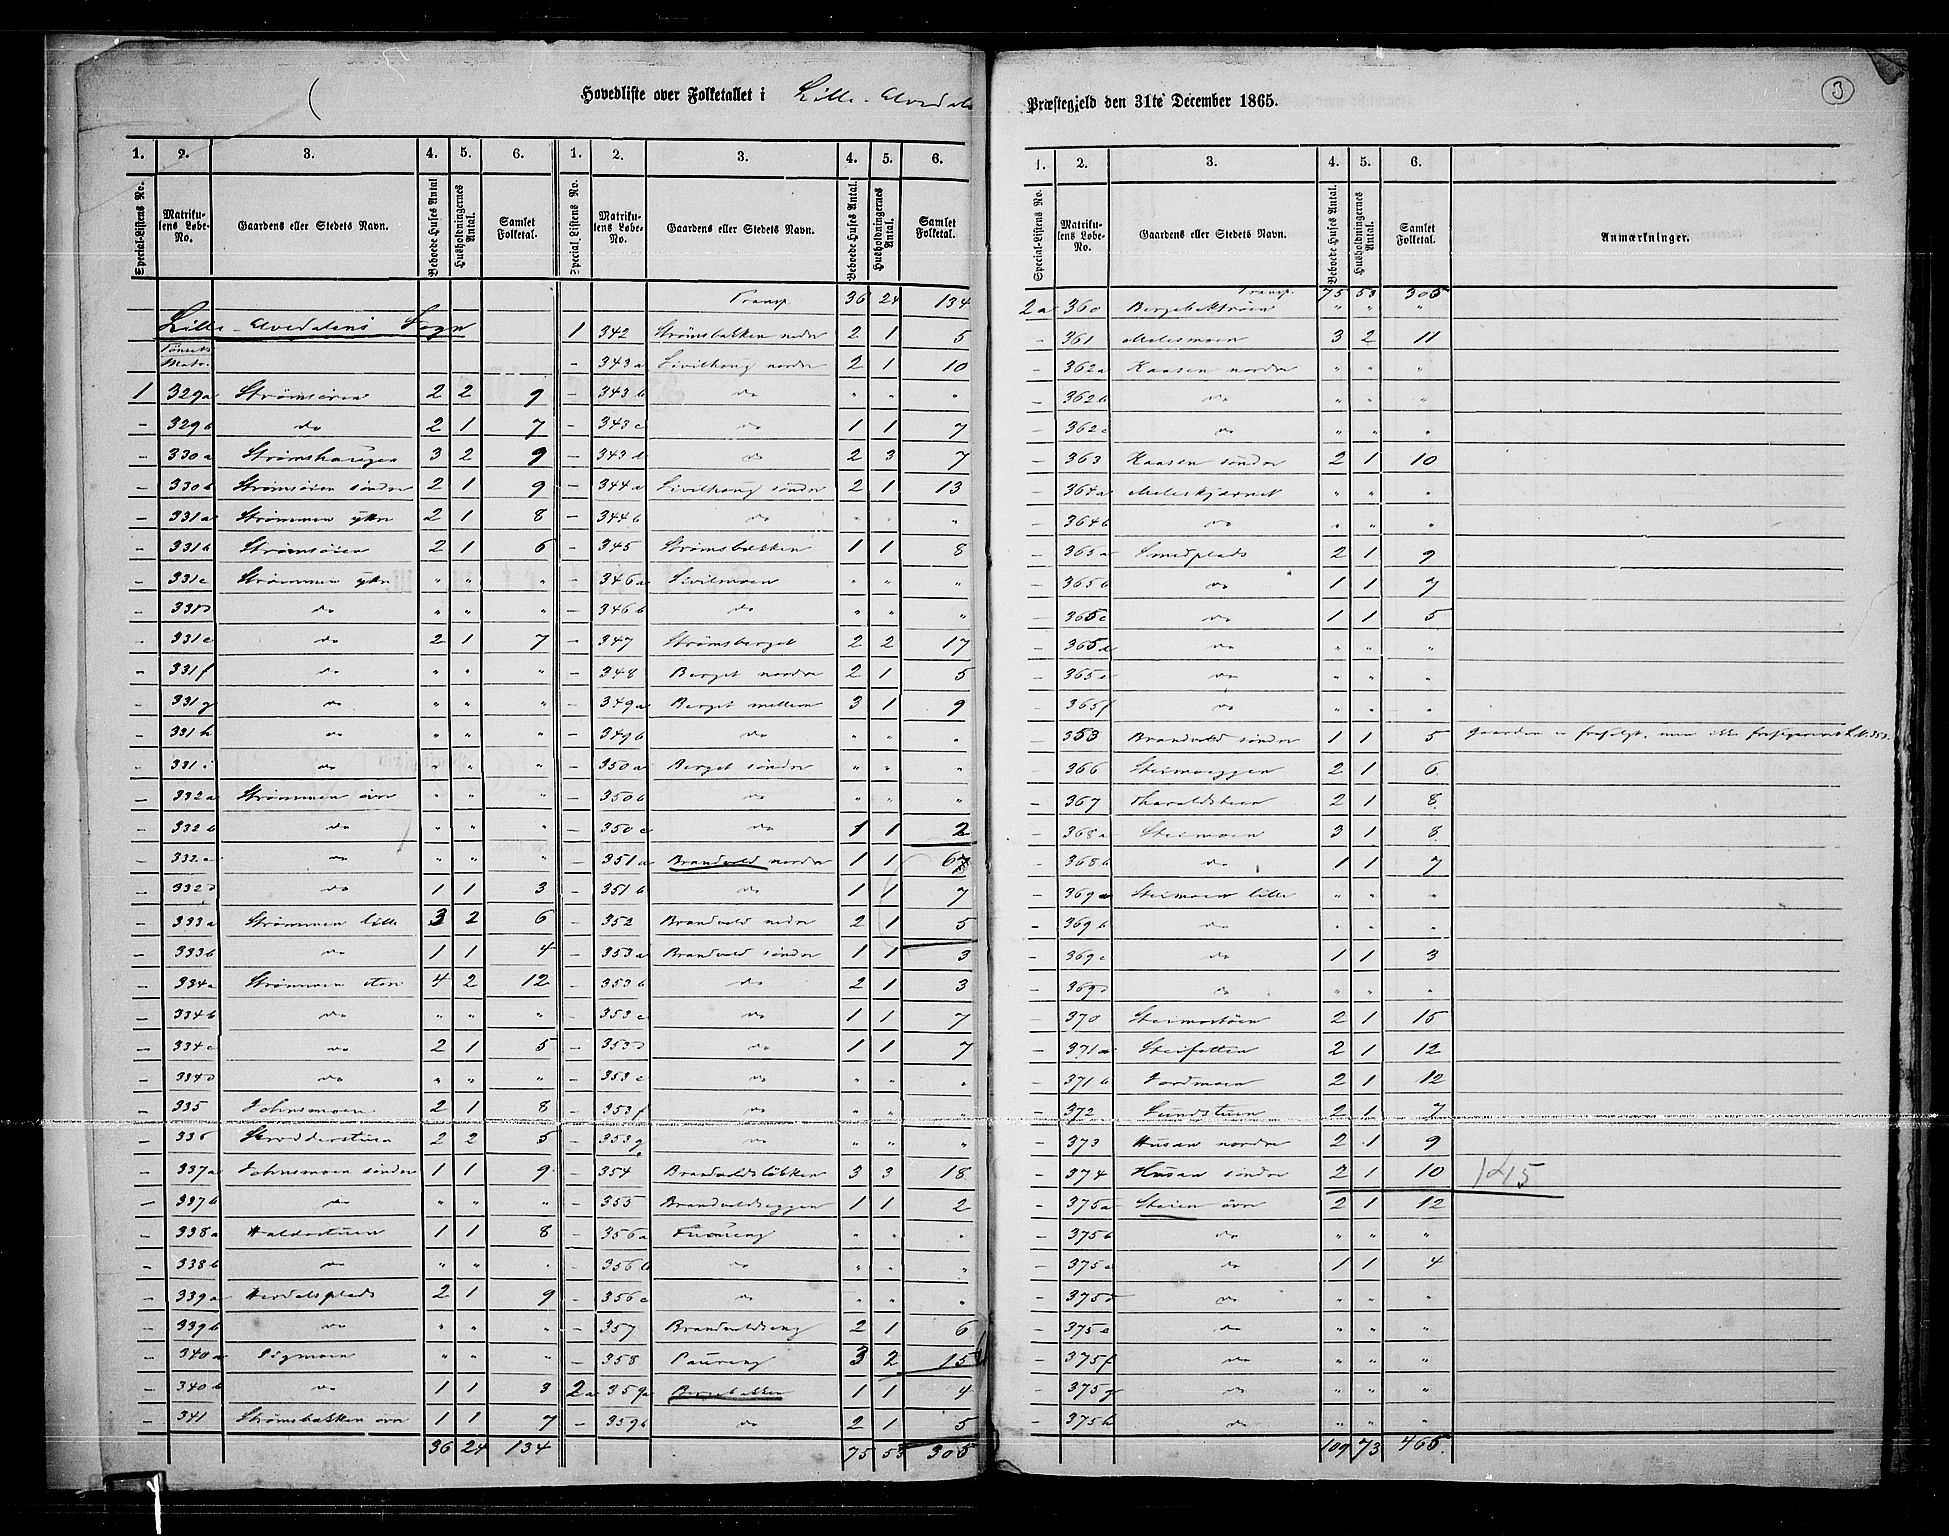 Hovedliste over Folketallet i Lille-Elvedalen
Præstegjeld den 31te December 1865.
3
1. 2. 3. 4. 5. 6.
Special-Listens No. Matrikulens Løbe-No. Gaardens eller Stedets Navn. Beboede Huses Antal Husholdningernes Antal. Samlet Folketal.
Lille-Elvedalens Sogn
Tønsets
Matr.
1 329a Strømsøien 2 2 9
- 329b do 2 1 7
- 330a Strømshaugen 3 2 9
- 330b Strømsøien søndre 2 1 9
- 331a Strømmen ytre 2 1 8
- 331b Strømsøien 2 1 6
- 331c Strømmen ytre " " "
- 331d do " " "
- 331e do 2 1 7
- 331f do " " "
- 331g do " " "
- 331h do " " "
- 331i do " " "
- 332a Strømmen øvre " " "
- 332b do " " "
- 332c do " " "
- 332d do 1 1 3
- 333a Strømmen lille 3 2 6
- 333b do 1 1 4
- 334a Strømmen store 4 2 12
- 334b do " " "
- 334c do 2 1 5
- 334d do " " "
- 335 Johnsmoen 2 1 8
- 336 2 2 5
- 337a Johnsmoen søndre 1 1 9
- 337b do " " "
- 338a Haldostuen 1 1 8
- 338b do " " "
- 339a plads 2 1 9
- 339b do " " "
- 340a Sigmoen " " "
- 340b do 1 1 3
- 341 Strømsbakken øvre 1 1 7
36 24 134
1. 2. 3. 4. 5. 6.
Special Listens No. Matrikulens Løbe-No. Gaardens eller Stedets Navn. Beboede Huses Antal. Husholdningernes Antal. Samlet Folketal.
Transp. 36 24 134
1 342 Strømsbakken nedre 2 1 5
- 343a Livilhoug nordre 2 1 10
- 343b do " " "
- 343c do 1 1 7
- 343d do 2 3 7
- 344a Livilhoug søndre 2 1 13
- 344b do " " "
- 345 Strømsbakken 1 1 8
- 346a Livilmoen " " "
- 346b do " " "
- 347 Strømsberget 2 2 17
- 348 Berget nordre 2 1 5
- 349a Berget mellem 3 1 9
- 349b do " " "
- 350a Berget søndre " " "
- 350b do " " "
- 350c do 1 1 2
- 351a Brandvold nordre 1 1 67
- 351b do 1 1 7
- 352 Brandvold nedre 2 1 5
- 353a Brandvold søndre 1 1 3
- 353b do 2 1 3
- 353c do 1 1 7
- 353d do 1 1 7
- 353e do " " "
- 353f do " " "
- 353g do " " "
- 354 Brandvoldsløkken 3 3 18
- 355 Brandvoldseggen 1 1 2
- 356a " " "
- 356b do " " "
- 356c do " " "
- 357 Brandvoldseng 2 1 6
- 358 3 2 15
2a 359a Bergebakken 1 1 4
- 359b do 2 1 5
75 53 305
1. 2. 3. 4. 5. 6.
Special-Listens No. Matrikulens Løbe-No. Gaardens eller Stedets Navn. Beboede Huses Antal. Husholdningernes Antal. Samlet Folketal. Anmærkninger.
Transp. 75 53 305
2a 360 " " "
- 361 Melesmoen 3 2 11
- 362a Kaasen nordre " " "
- 362b do " " "
- 362c do " " "
- 363 Kaasen søndre 2 1 10
- 364a Meleskjærnet " " "
- 364b do " " "
- 365a Smedplads 2 1 9
- 365b do 1 1 7
- 365c do 1 1 5
- 365d do " " "
- 365e do " " "
- 365f do " " "
- 353 Brandvold søndre 1 1 5 Gaarden er frasolgt, men ikke
- 366 Steimoeggen 2 1 6
- 367 Haraldstuen 2 1 8
- 368a Steimoen 3 1 8
- 368b do 1 1 7
- 369a Steimoen lille " " "
- 369b do " " "
- 369c do 1 1 3
- 369d do " " "
- 370 Steimostøen 2 1 15
- 371a Steifetten 2 1 12
- 371b Jordmoen 2 1 12
- 372 Lundstuen 2 1 7
- 373 Husan nordre 2 1 9
- 374 Husan søndre 2 1 10 145
- 375a Steien øvre 2 1 12
- 375b do " " "
- 375c do 1 1 4
- 375d do " " "
- 375e do " " "
- 375f do " " "
- 375g do " " "
- 375h do " " "
109 73 465